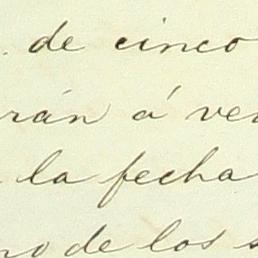 . de cinco
rán á ve
la fecha
no de los s